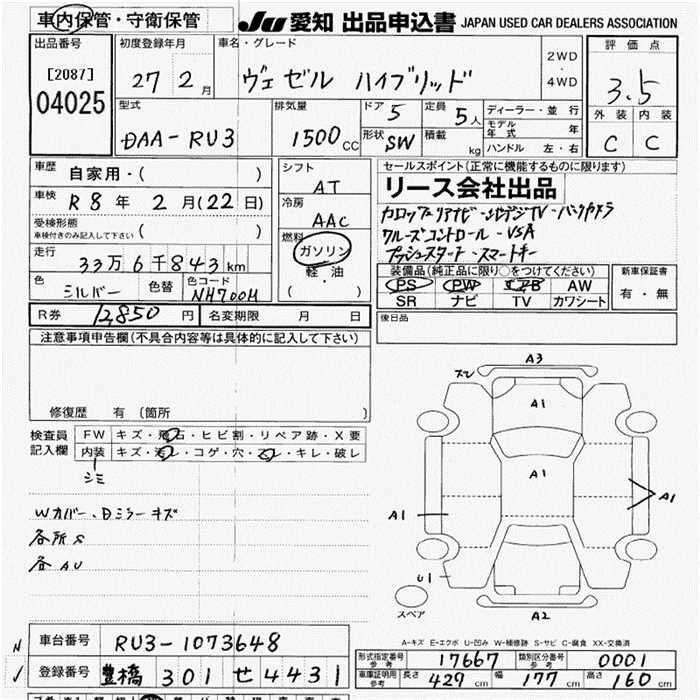 車内保管・守衛保管
JU 愛知 出品申込書 JAPAN USED CAR DEALERS ASSOCIATION
出品番号
[2087]
04025
初度登録年月
27年2月
車名・グレード
ヴェゼル ハイブリッド
2WD
・
4WD
評価点
3.5
外装 内装
C C
型式
DAA-RU3
排気量
1500cc
ドア 5
形状 SW
定員 5人
積載 kg
ディーラー・並行
モデル年式 年
ハンドル 左・右
車歴 自家用・( )
車検 R8年2月(22日)
受検形態
車検付きのみ記入して下さい ( )
走行 33万6千843km
色 シルバー 色替 色コード NH700M
シフト AT
冷房 AAC
燃料 ガソリン
軽・油
( )
セールスポイント(正常に機能するものに限ります)
リース会社出品
カロッツェリアナビ-フルセグTV-バックカメラ
クルーズコントロール-VSA
プッシュスタート-スマートキー
装備品(純正品に限り○をつけてください)
PS PW エアB AW
SR ナビ TV カワシート
新車保証書
有・無
R券 12,850円 名変期限 月 日
後日品
注意事項申告欄(不具合内容等は具体的に記入して下さい)
修復歴 有 〔箇所 〕
検査員記入欄
FW キズ・飛石・ヒビ割・リペア跡・X要
内装 キズ・汚レ・コゲ・穴・スレ・キレ・破レ
シミ
Wカバー、Dミラーキズ
各所S
各AU
A3
スレ
A1
A1
A1
A1
U1
A2
スペア
A-キズ E-エクボ U-凹み W-補修跡 S-サビ C-腐食 XX-交換済
車台番号 RU3-1073648
登録番号 豊橋 301 せ 4431
形式指定番号 参考 17667 類別区分番号 参考 0001
車庫証明用 参考 長さ 429cm 幅 177cm 高さ 160cm